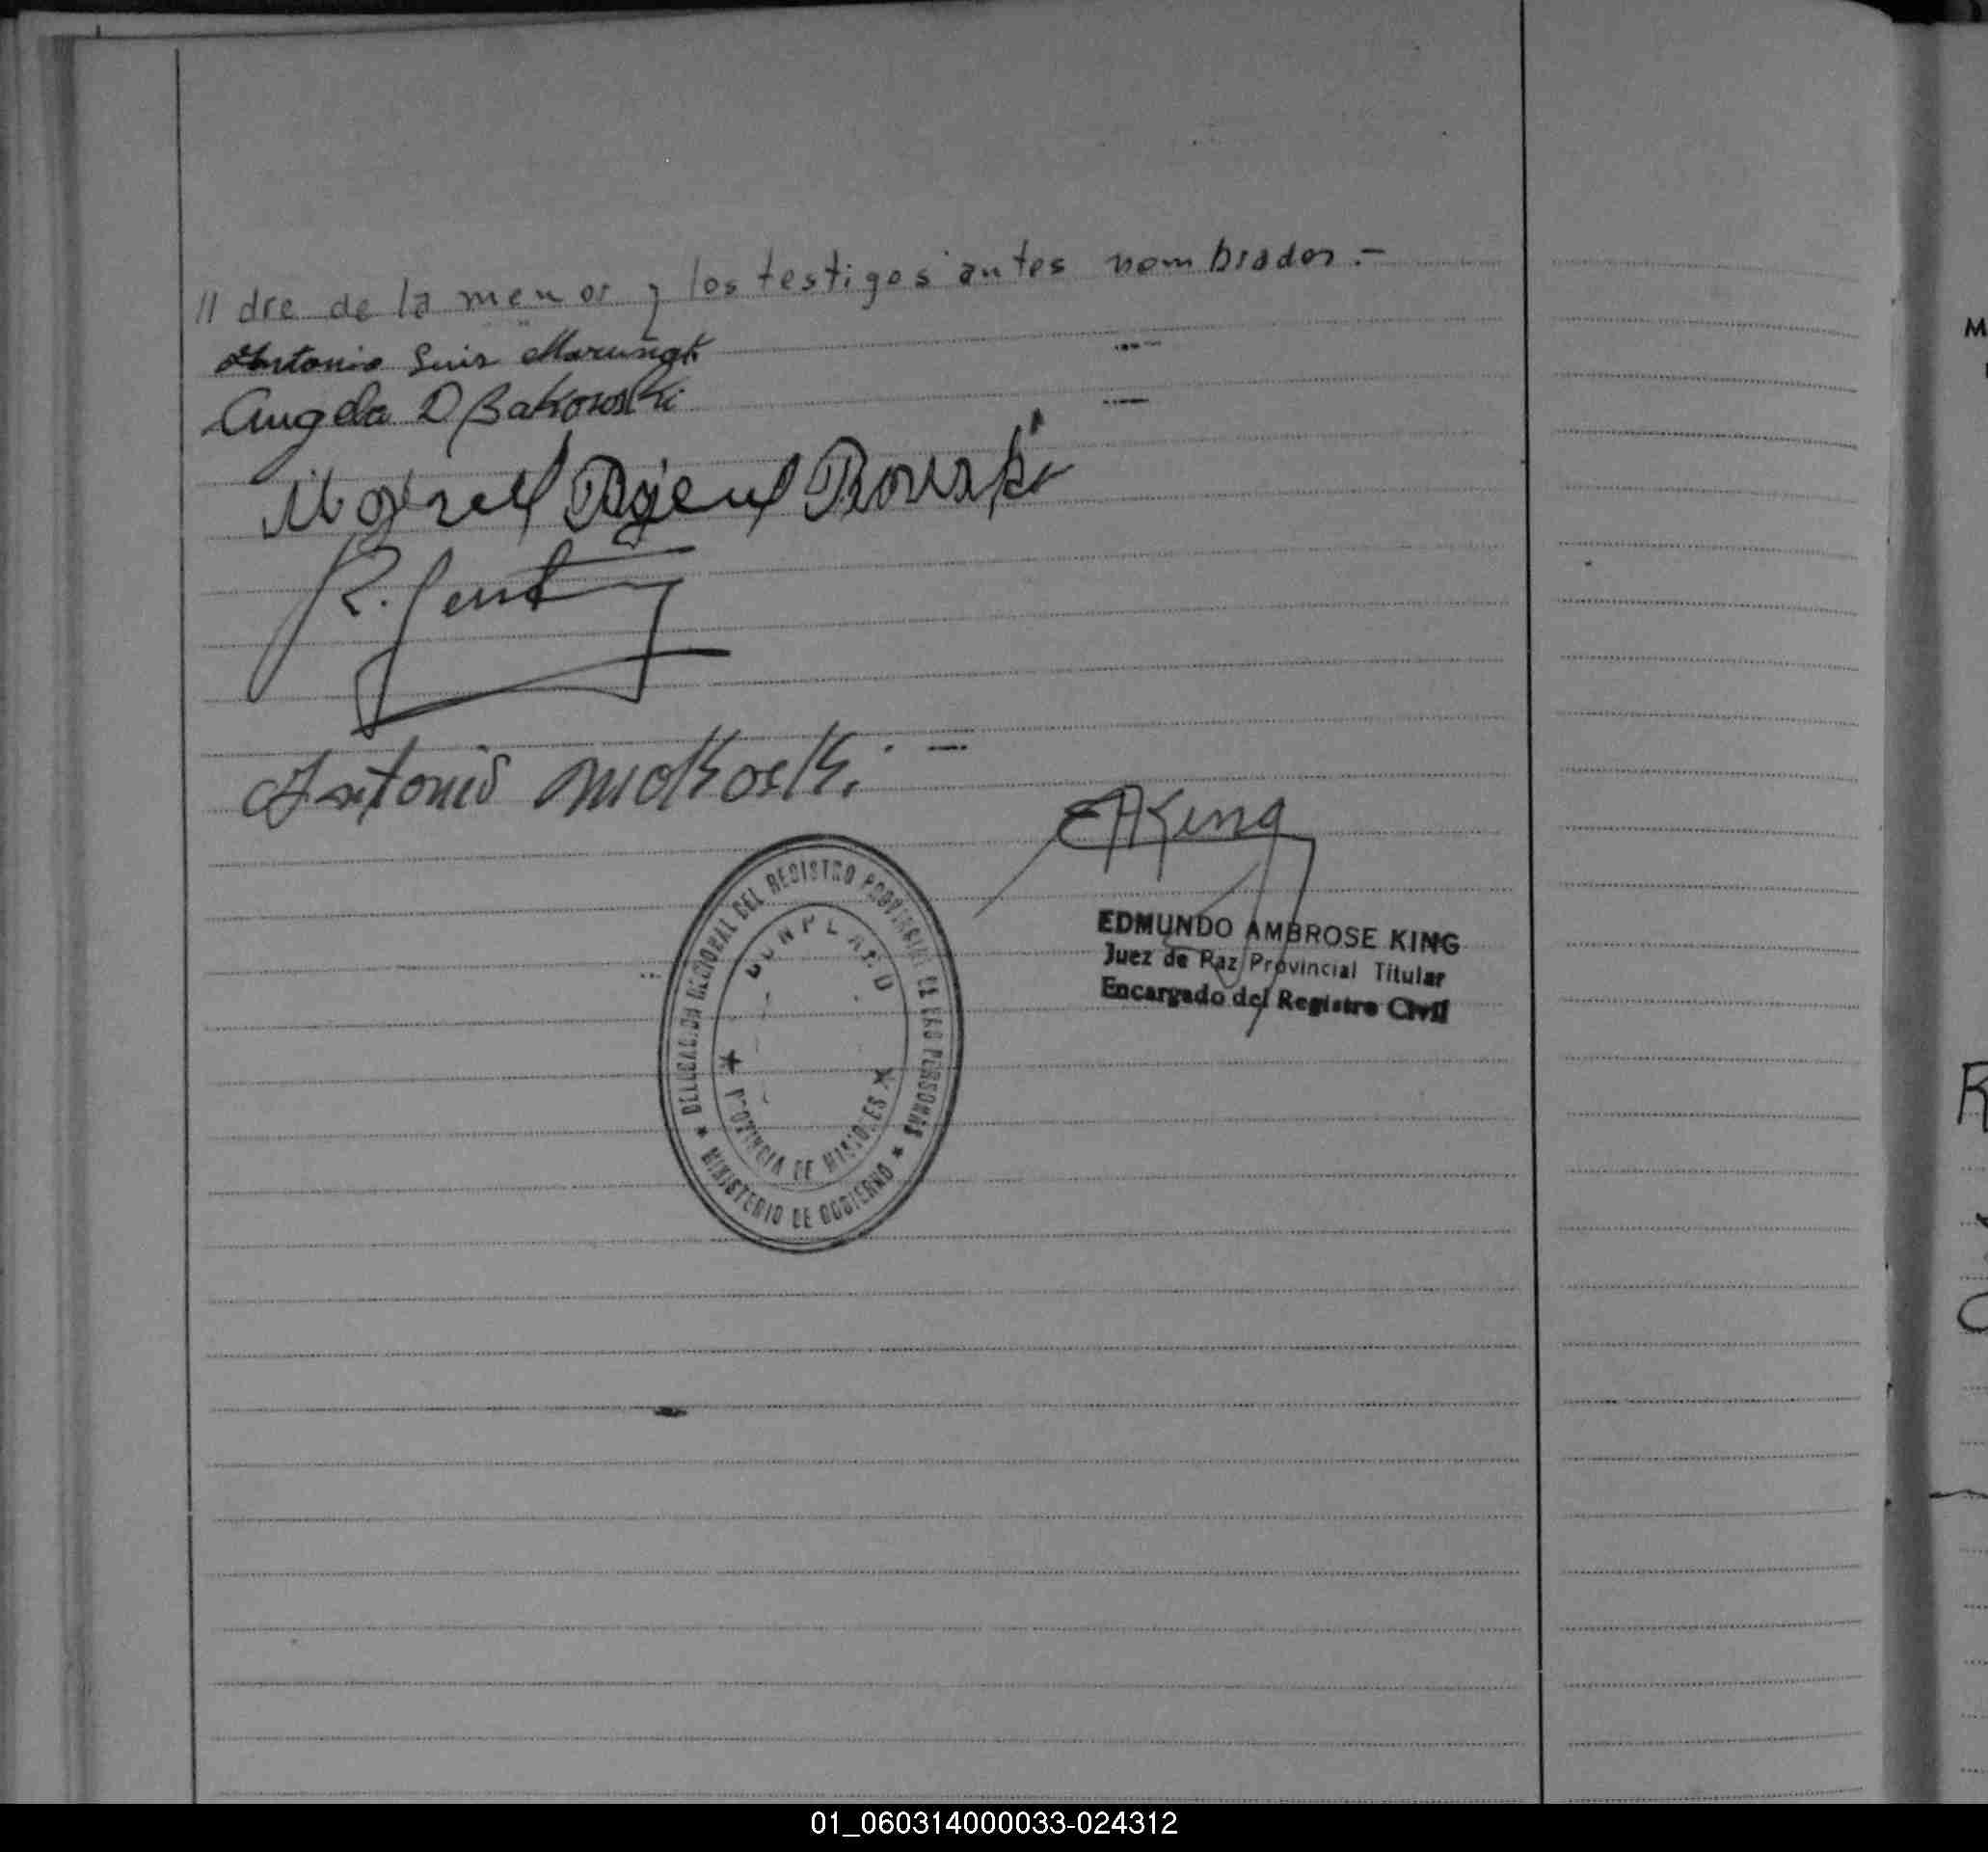 // dre de la menor y los testigos antes nombrados.-
Antonio Luis
Angela D Bakowski
R.
Antonio Mokoski. -
EAKing
EDMUNDO AMBROSE KING
Juez de Paz Provincial Titular
Encargado del Registro Civil
DELEGACION REGIONAL DEL REGISTRO PROVINCIAL DE LAS PERSONAS
BONPLAND
★ PROVINCIA DE MISIONES ★
★ MINISTERIO DE GOBIERNO ★
M
R
01_060314000033-024312